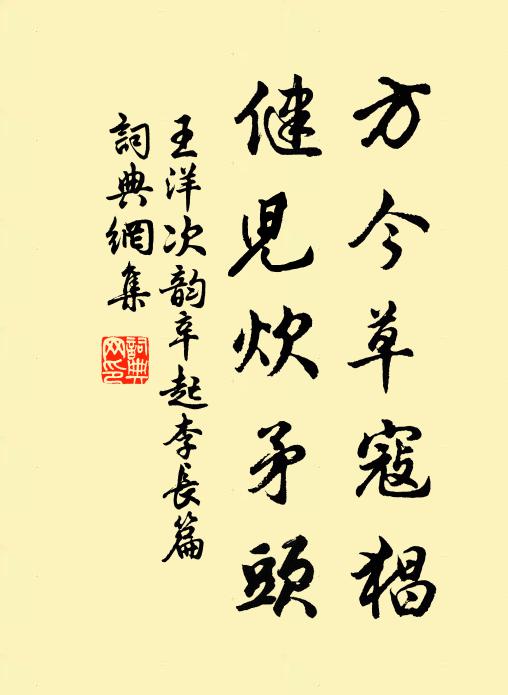 方今草寇猖
健児炊矛頭
王洋次韵卒起李長篇
詞典網集
詞典网印